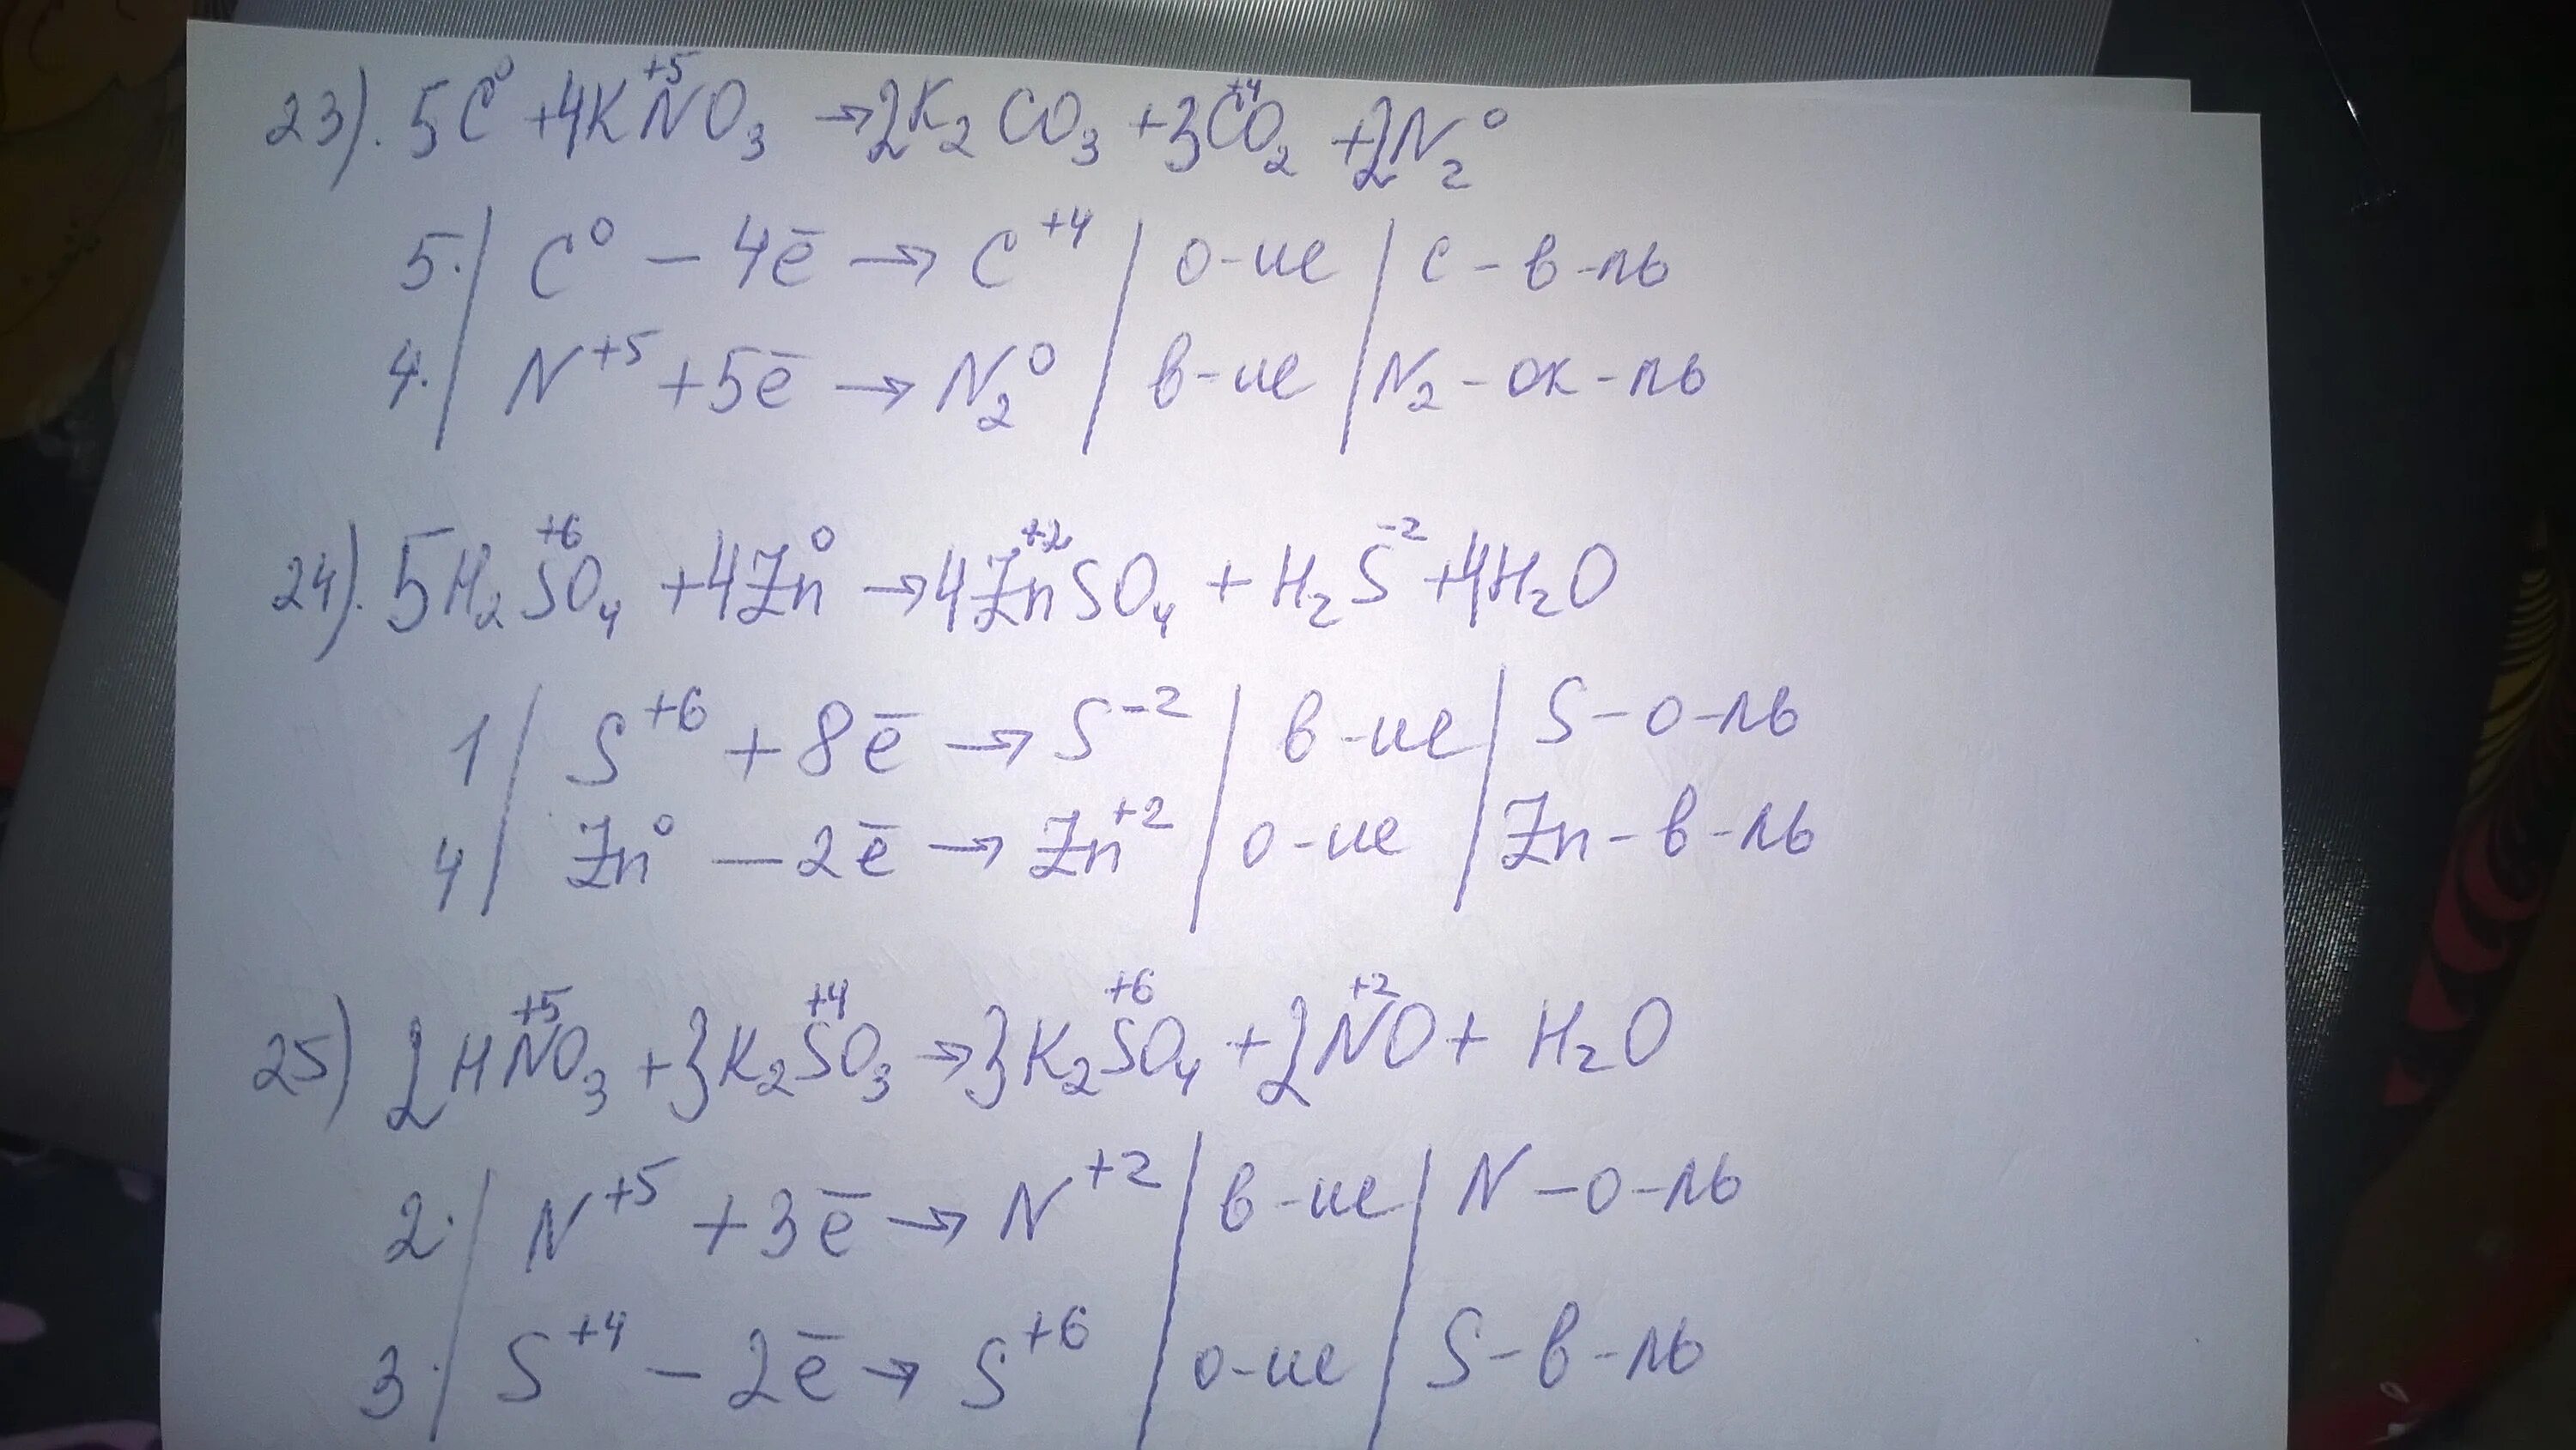 23). 5C⁰ + 4KN⁺⁵O₃ → 2K₂CO₃ + 3C⁺⁴O₂ + 2N₂⁰
5. | C⁰ – 4ē → C⁺⁴ | о-ие | C – в-ль
4. | N⁺⁵ + 5ē → N₂⁰ | в-ие | N₂ – ок-ль
24). 5H₂S⁺⁶O₄ + 4Zn⁰ → 4Zn⁺²SO₄ + H₂S⁻² + 4H₂O
1 | S⁺⁶ + 8ē → S⁻² | в-ие | S – о-ль
4 | Zn⁰ — 2ē → Zn⁺² | о-ие | Zn – в-ль
25) 2HN⁺⁵O₃ + 3K₂S⁺⁴O₃ → 3K₂S⁺⁶O₄ + 2N⁺²O + H₂O
2. | N⁺⁵ + 3ē → N⁺² | в-ие | N – о-ль
3. | S⁺⁴ – 2ē → S⁺⁶ | о-ие | S – в-ль